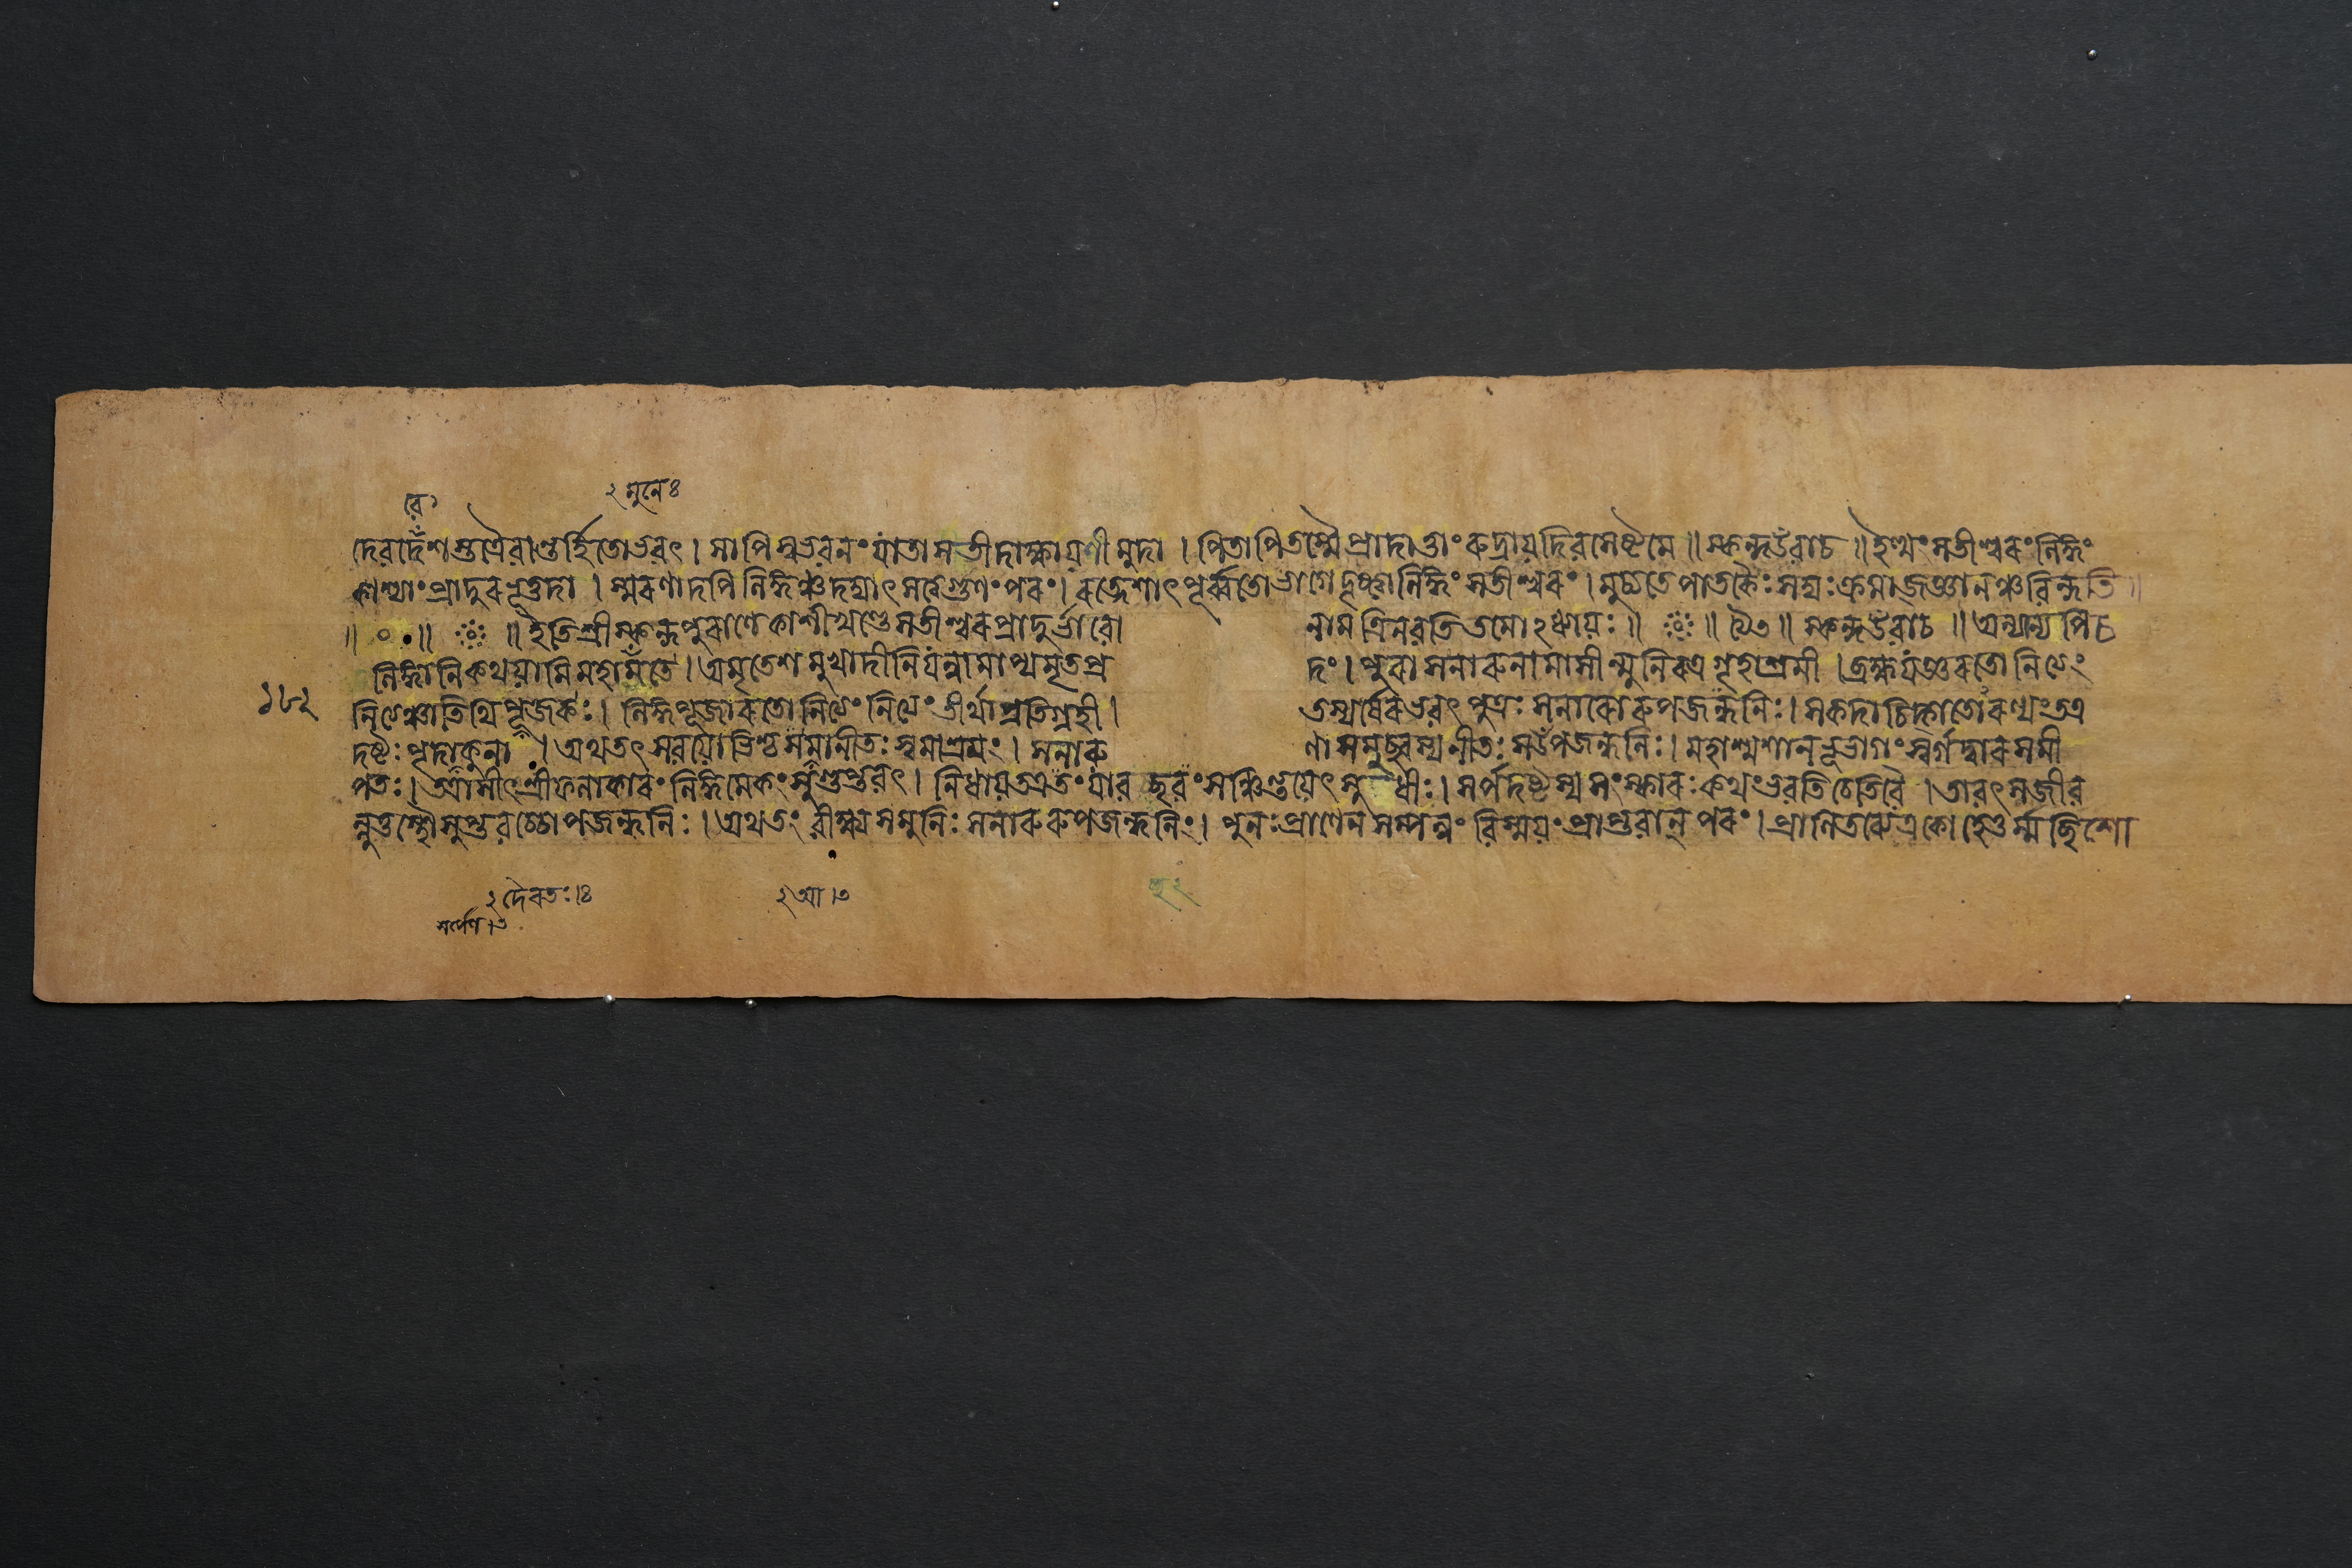 বে১
২ মুনেঃ ৪
দেবদেবেশস্তত্রৈবান্তর্হিতোভবৎ । সাপিস্বভবনং যাতা সতীদাক্ষায়ণীমুদা । পিতাপিতস্মৈপ্রাদাত্তাং রুদ্রায়দিবসেষ্টমে ॥ স্কন্দউবাচ ॥ ইত্থং সতীশ্বরং লিঙ্গং
কাশ্যাং প্রাদুরভূত্তদা । স্মরণাদপিলিঙ্গঞ্চদদ্যাৎ সত্ত্বগুণং পরং । রত্নেশাৎ পূর্ব্বতোভাগেদৃষ্ট্বালিঙ্গং সতীশ্বরং । মুচ্যতেপাতকৈঃ সদ্যঃ ক্রমাজ্জ্ঞানঞ্চবিন্দতি ॥
॥ ০ ॥ ॥ ইতিশ্রীস্কন্দপুরাণেকাশীখণ্ডেসতীশ্বরপ্রাদুর্ভাবো নামত্রিনবতিতমোঽধ্যায়ঃ ॥ ॥ ৯৩ ॥ স্কন্দউবাচ ॥ অন্যান্যপিচ
লিঙ্গানিকথয়ামিমহামতে । অমৃতেশমুখাদীনিযন্নামাপ্যমৃতপ্র দং । পুরাসনারুনামাসীন্মুনিরত্রগৃহাশ্রমী । ব্রহ্মযজ্ঞরতোনিত্যং
১৮২
নিত্যঞ্চাতিথিপূজকঃ । লিঙ্গপূজারতোনিত্যং নিত্যং তীর্থাপ্রতিগ্রহী । তস্যর্ষেরভবৎ পুত্রঃ সনারোরুপজঙ্ঘনিঃ । সকদাচিদ্গতোরণ্যং তত্র
দষ্টঃ পৃদাকুনা । অথতৎসবয়োভিশ্চসমানীতঃ স্বমাশ্রমং । সনারু ণাসমুচ্ছ্বস্যনীতঃ সউপজঙ্ঘনিঃ । মহাশ্মশানভূভাগং স্বর্গদ্বারসমী
পতঃ । আসীৎ শ্রীফলাকারং লিঙ্গমেকং সুগুপ্তবৎ । নিধায়তত্রতং যাবচ্ছবং সঞ্চিন্তয়েৎ সুধীঃ । সর্পদষ্টস্যসংস্কারঃ কথংভবতিচেতিবৈ । তাবৎ সজীব
ন্নুত্তস্থৌসুপ্তবচ্চৌপজঙ্ঘনিঃ । অথতং বীক্ষ্যসমুনিঃ সনারুরুপজঙ্ঘনিং । পুনঃ প্রাণেনসম্পন্নং বিস্ময়ং প্রাপ্তবান্ পরং । প্রাণিতব্যেত্রকোহেতুর্ম্মচ্ছিশো
২ দৈবতঃ । ৪
২ আ । ৩
সর্পেণ । ৩